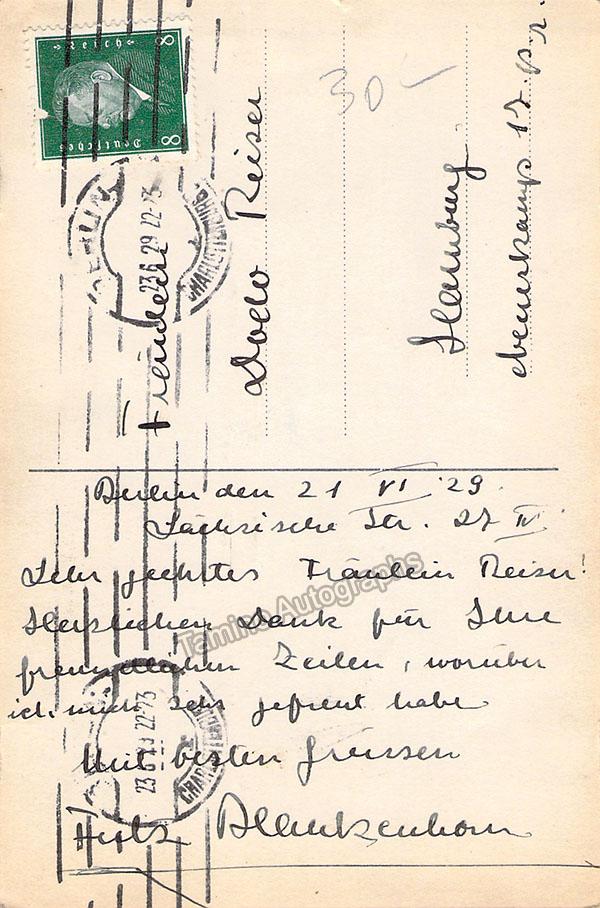 Deutsches Reich
8 8
BERLIN
CHARLOTTENBURG
23.6.29 22-23
Fräulein
Dodo Reiser
30-
Hamburg
17. ptr.
Berlin den 21 VI. 29.
Sächsische Str. 27 IV.
Sehr geehrtes Fräulein Reiser!
Herzlichen Dank für Ihre
freundlichen Zeilen, worüber
ich mich sehr gefreut habe
Mit besten Grüssen
Hütz Blankenhorn
Tamino Autographs
CHARLOTTENBURG